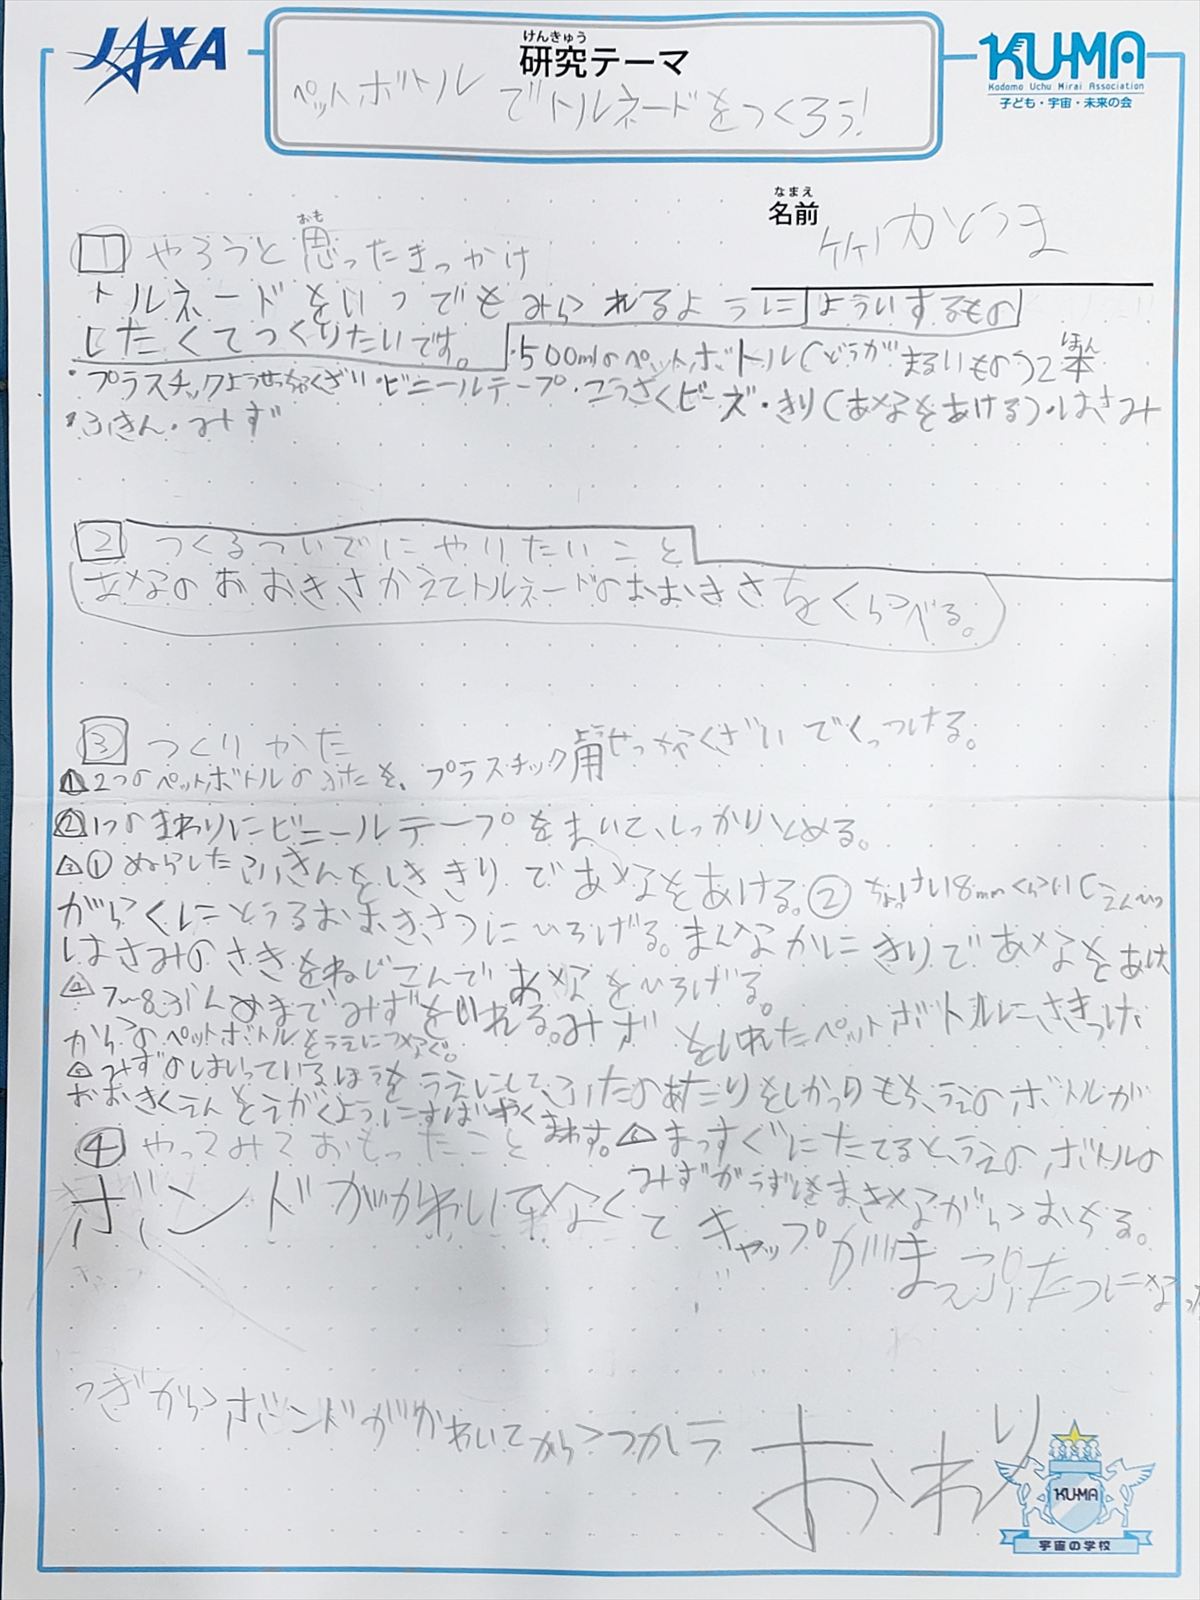 JAXA
けんきゅう
研究テーマ
ペットボトルでトルネードをつくろう!
KU-MA
Kodomo Uchu Mirai Association
子ども・宇宙・未来の会
なまえ
名前 竹 かどうま
1 やろうと思ったきっかけ
おも
トルネードをいつでもみられるように
したくてつくりたいです。
よういするもの
・500mlのペットボトル(どうがまるいもの)2本
ほん
・プラスチックようせっちゃくざい・ビニールテープ・こうさくビーズ・きり(あなをあける)・はさみ
・ふきん・みず
2 つくるついでにやりたいこと
あなのおおきさかえてトルネードのおおきさをくらべる。
3 つくりかた
1 2つのペットボトルのふたを、プラスチック用せっちゃくざいでくっつける。
2 1つのまわりにビニールテープをまいて、しっかりとめる。
3 ① ぬらしたふきんをしききりであなをあける。② ちょっけい8mmくらい(えんぴつ
がらくにとうるおおきさ)にひろげる。まんなかにきりであなをあけ
はさみのさきをねじこんであなをひろげる。
4 7〜8ぶんめまでみずをいれる。みずをいれたペットボトルにさきつけ
からのペットボトルをうえにつなぐ。
5 みずのはいっているほうをうえにして、ふたのあたりをしっかりもち、うえのボトルが
おおきくえんをえがくようにすばやくまわす。6 まっすぐにたてると、うえのボトルの
みずがうずをまきながらおちる。
4 やってみておもったこと
ボンドがかわいてなくてキャップがまっぷたつになっ
つぎからボンドがかわいてからつかう
おわり
KU-MA
宇宙の学校